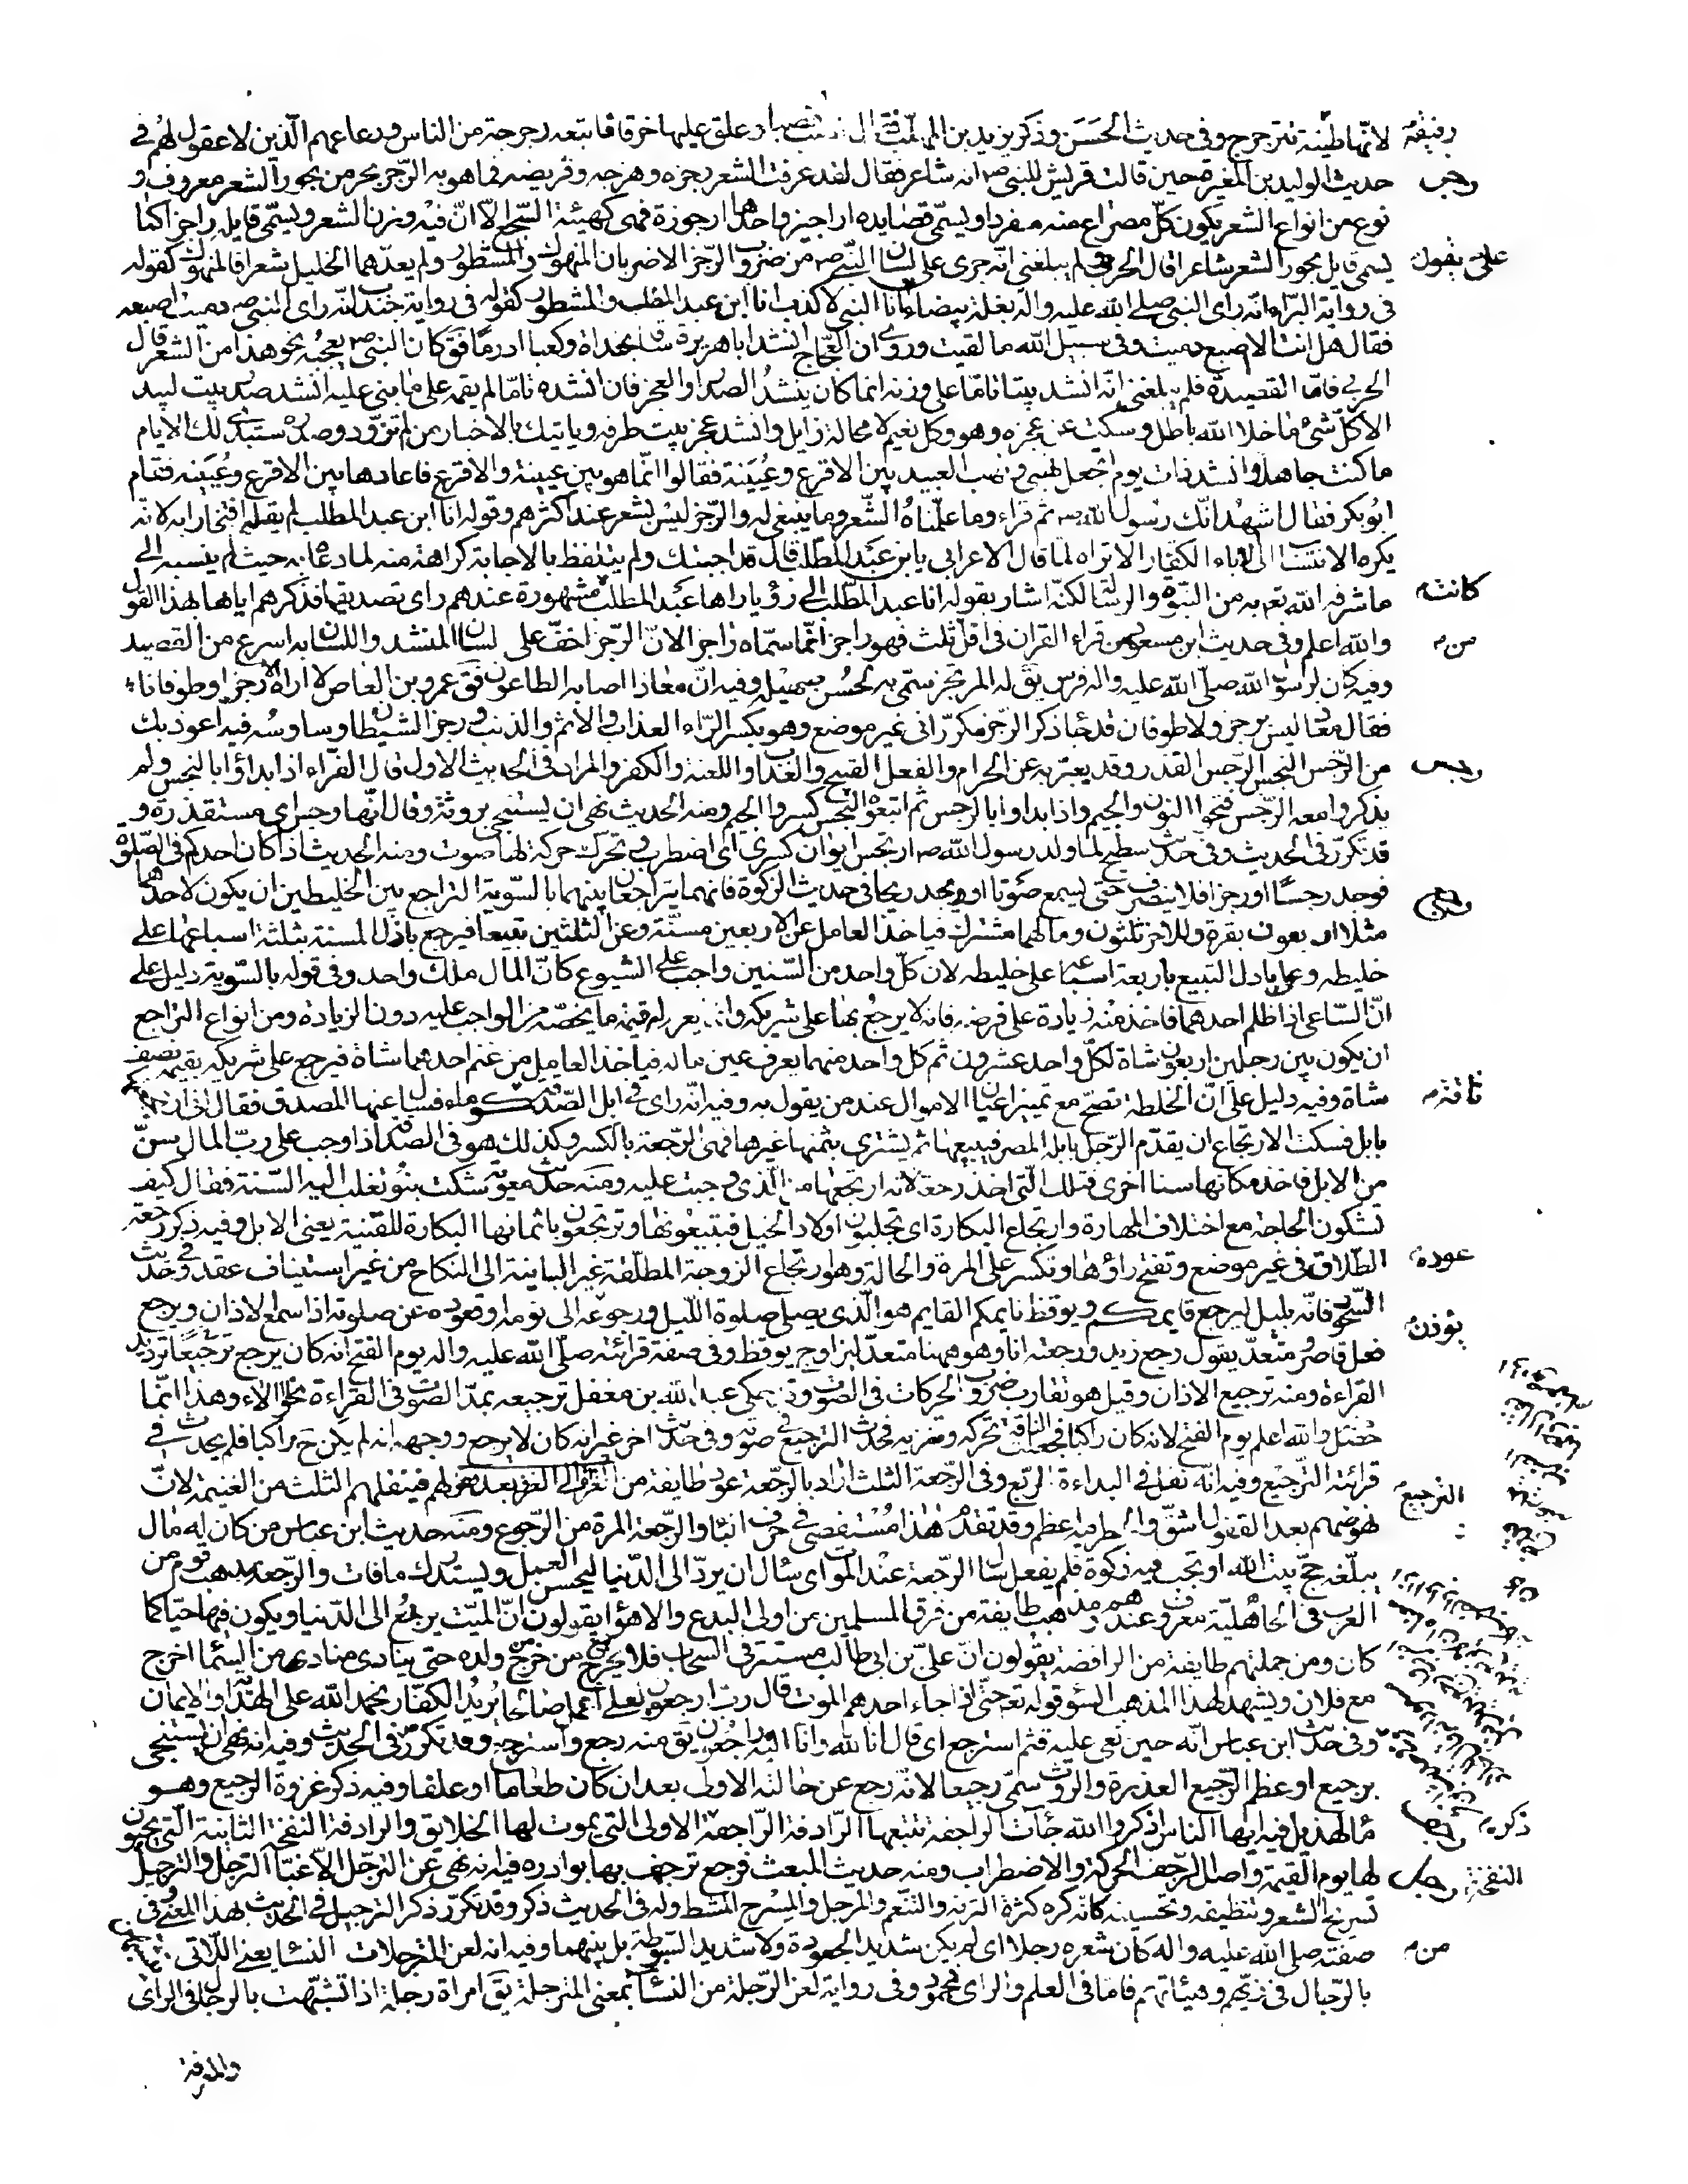 لانّها طينة تترجرج وفى حديث الحَسَن وذكر يزيد بن المهلّب فقال نصب قصبا وعلق عليها خرقا فاتبعه رجرجة من الناس ورعاعهم الّذين لا عقول لهُم فى
رجز
حديث الوليد بن المغيرة حين قالت قريش للنبى صم انه شاعر فقال لقد عرفت الشعر رجزه وهزجه وقريضه فما هو به الرّجز بحر من بحور الشعر معروف و
نوع من انواع الشعر يكون كلّ مصراع منه مفردا ويسمّى قصايده اراجيز واحدها ارجوزة فهى كهيئة السّجع الّا انّ فيْه وزن الشعر ويسمّى قايله راجزا كما
يسمى قايل بحور الشعر شاعرا قال الحربى لم يبلغنى انّه جرى على لسان النّبى صم من ضروب الرّجز الا ضربان المنهوك والمشطور ولم يعدّهما الخليل شعرا فالمنهوك كقوله
فى رواية البرّاء انّه راى النبى صلى الله عليه واله بغلة بيضاء يقول انا النبى لا كذب انا ابن عبد المطلب والمشطور كقوله فى رواية جندب انّه راى النبى صم دميت اصبعه
فقال هل انت الا اصبع دميت وفى سبيل الله ما لقيت وروى ان العجّاج انشد ابا هريرة ساقا بخنداة وكعبا ادرما فق كان النبى صم يعجبُه نحو هذا من الشعر قال
الحربى فامّا القصيدة فلم يبلغنى انّه انشد بيتا تامّا على وزنه انما كان ينشدُ الصدر او العجز فان انشده تامّا لم يقمه على ما بنى عليه انشد صدر بيت لبيد
الا كلّ شىء ما خلا الله باطل وسكت عن عجزه وهو وكل نعيم لا محالة زايل وانشد عجز بيت طرفه وياتيك بالاخبار من لم تزوّد وصدره ستبدى لك الايام
ما كنت جاهلا وانشد ذات يوم اتجعل نهبى ونهب العبيد بين الاقرع وعُيَينة فقالوا انّما هو بين عيينة والاقرع فاعادها بين الاقرع وعُيَينه فقام
ابُو بكر فقال اشهدُ انّك رسُول الله صم ثم قراء وما علّمناهُ الشّعر وما ينبغى له والرّجز ليسْ بشعر عند اكثرهم وقوله انا ابن عبد المطلب لم يقله افتخارا به لانّه
يكره الانتساب الى الاباء الكفّار الا تراه لمّا قال الاعرابى يا بن عبَد المطّلب قال قد اجبتك ولم يتلفظ بالاجابة كراهة منه لما دعا به حيث لم ينسبه الى
ما شرفه الله تعم به من النّبوّة والرسالة لكنّه اشار بقوله انا عبد المطّلب الى رؤيا راها عبَد المطلب كانت مشهورة عندهم راى تصديقها فذكرهم اياها بهذا القول
والله اعلم وفى حديث ابن مسعود من قراء القران فى اقلّ ثلث فهو راجز انّما سمّاه راجزا لانّ الرّجز اخفّ على لسان المنشد واللسان به اسرع من القصيد
وفيه كان لرسول الله صلّى الله عليه واله فرس يق له المرتجز سمّى به لحُسن صهيله وفيه انّ معاذا اصابه الطاعون فق عمرو بن العاص لا اراه الا رجزا وطوفانا
فقال معاذ ليس برجز ولا طوفان قد جاء ذكر الرّجز مكرّرا فى غير موضع وهو بكسر الرّاء العذاب والاثم والذنب ورجز الشيطان وساوسُه فيه اعوذ بك
رجس
من الرّجس النجس الرّجس القذر وقد يعبّر به عن الحرام والفعل القبيح والعذاب واللعنة والكفر والمراد فى الحديث الاول قال الفرّاء اذا بداؤا بالنجس ولم
يذكروا معه الرّجس فتحوا النون والجيم واذا بداوا بالرجس ثم اتبعوه النجس كسروا الجيم ومنه الحديث نهى ان يستنجى بروثة وقال انّها رجس اى مستقذرة و
قد تكرّر فى الحديث وفى حديث سطيح لما ولد رسول الله صم ارتجس ايوان كسرى اى اضطرب وتحرك حركة لها صوت ومنه الحديث اذا كان احدكم فى الصّلوة
رجع
فوجد رجسًا او رجزا فلا ينصرف حتى يسمع صوتا او يجد ريحا فى حديث الزكوة فانهما يتراجعان بينهما بالسّوية التراجع بين الخليطين ان يكون لاحدهما
مثلا اربعون بقرة وللاخر ثلثون ومالهما مشترك فياخذ العامل عن الاربعين مسنّة وعن الثلثين تبيعا فيرجع باذل المسنة بثلثة اسباعها على
خليطه وباذل التبيع باربعة اسباعه على خليطه لان كلّ واحد من السّنين واجب على الشيوع كانّ المال ملك واحد وفى قوله بالسّوية دليل على
انّ السّاعى اذا ظلم احدهما فاخذ منْه زيادة على فرضه فانه لا يرجع بها على شريكه وانما يغرم له قيمة ما يخصّه من الواجب عليه دون الزيادة ومن انواع التراجع
ان يكون بين رجلين اربعون شاة لكلّ واحد عشرون ثم كل واحد منهما يعرف عين ماله فياخذ العامل من غنم احدهما شاة فيرجع على شريكه بقيمة نصف
شاة وفيه دليل على انّ الخلطة تصحّ مع تميز اعيان الاموال عند من يقول به وفيه انّه راى فى ابل الصّدقة ناقة كوماء فسال عنها المصدق فقال انى ارتجعتها
بابل فسكت الارتجاع ان يقدّم الرّجل بابله المصر فيبيعها ثم يشترى بثمنها غيرها فهى الرّجعة بالكسر وكذلك هو فى الصدقة اذا وجب على ربّ المال سنّ
من الابل فاخذ مكانها سنا اخرى فتلك التى اخذ رجعة لانه ارتجعها من الّذى وجبت عليه ومنَه حديث معوية شكت بنُو تغلب اليه السّنة فقال كيف
تشكون الحاجة مع اختلاف المهارة وارتجاع البكارة اى تجلبون اولاد الخيل فتبيعُونها وترتجعون باثمانها البكارة للقنية يعنى الابل وفيه ذكر رجعة
الطّلاق فى غير موضع وتفتح راؤها وتكسر على المرة والحالة وهو ارتجاع الزوجة المطلّقة غير البانية الى النكاح من غير استيناف عقد وفى حديث
السّحور فانّه يؤذن بليل ليرجع قايمكم ويوقظ نايمكم القايم هو الّذى يصلى صلوة اللّيل ورجوعه عوده الى نومه او قعوده عن صلوته اذا سمع الاذان ويرجع
فعل قاصر ومتعدّ يقول رجع زيد ورجعته انا وهو ههنا متعدّ ليزاوج يوقظ وفى صفة قرائته صلّى الله عليه واله يوم الفتح انه كان يرجع ترجيعا ترديد
القراءة ومنه ترجيع الاذان وقيل هو تقارب ضروب الحركات فى الصّوت وقد حكى عبد الله بن مغفل ترجيعه بمدّ الصّوت فى القراءة نحو آ ا لاء وهذا انّما
حصَل والله اعلم يوم الفتح لانه كان راكبا فجعلت الناقة تحركه وتنزيه فحدث الترجيع فى صوته وفى حديث اخر غير انه كان لا يرجع ووجهه انه لم يكن ح راكبا فلم يحدث فى
قرائته التّرجيْع وفيه انّه نفل فى البداءة الرّبع وفى الرّجعة الثلث اراد بالرجّعة عود طايفة من الغزاة الى الغزو بعد قفولهم فينفلهم الثلث من الغنيمة لانّ
نهوضهم بعد القفول اشقّ والخطر فيه اعظم وقد تقدّم هذا مُسْتقصى فى حرف الباء والرّجعة المرة من الرّجوع ومنَه حديث ابن عباس من كان له مال
يبلّغه حجّ بيت الله او تجب فيه زكوة فلم يفعل سأل الرّجعة عنْد الموت اى سئال ان يردّ الى الدّنيا ليحسن العمل ويستدرك ما فات والرّجعة مذهب قوم من
العرب فى الجاهليّة معروف عندهم ومذهب طايفة من فرق المسلمين من اولى البدع والاهؤا يقولون انّ الميّت يرجعُ الى الدّنيا ويكون فيها حيّا كما
كان ومن جملتهم طايفة من الرافضة يقولون انّ علىّ بن ابى طالب مستتر فى السّحاب فلا يخرج مع من خرج من ولده حتى ينادى منادى من السّماء اخرج
مع فلان ويشهد لهذا المذهب السّوء قوله تعم حتّى اذا جاء احدهم الموت قال رب ارجعون لعلى اعمل صالحا يُريدُ الكفّار نحمد الله على الهداية والايمان
وفى حديث ابن عباس انّه حين نعى عليه قثم استرجع اى قال انا لله وانا اليه راجعون يق منه رجع واسترجع وقد تكرّر فى الحديث وفيه انه نهى ان يستنجى
برجيع او عظم الرّجيع العذرة والروث سمّى رجيعا لانّه رجع عن حالته الاولى بعد ان كان طعاما او علفا وفيه ذكر غزوة الرجيع وهو
رجف
مآ لهذيل فيه ايها الناس اذكروا الله جآت الراجفة تتبعها الرّادفة الرّاجفة الاولى التى يموت لها الخلايق والرادفة النفخة الثانية التى يحيون
رجل
لها يوم القيمة واصل الرّجف الحركة والاضطراب ومنه حديث المبعث فرجع ترجف بها بوادره فيه انه نهى عن الترجّل الّا غبّا الترجل والترجيل
تسريح الشعر وتنظيفه وتحسينه كانّه كره كثرة الترفه والتنعم والمرجل والمِسْرح المشط وله فى الحديث ذكر وقد تكرّر ذكر الترجيل فى الحديث بهذا المعنى وفى
صفته صلى الله عليه واله كان شعره رجلا اى لم يكن شديد الجعودة ولا شديد السّبوطة بل بينهما وفيه انه لعن المترجلات من النساء يعنى اللّاتى يتشبهن
بالرّجال فى زيّهم وهيئاتهم فاما فى العلم والراى فمحمود وفى رواية لعن الرّجلة من النّساء بمعنى المترجلة يق امراة رجلة اذا تشبّهت بالرجال فى الراى
والمعرفة